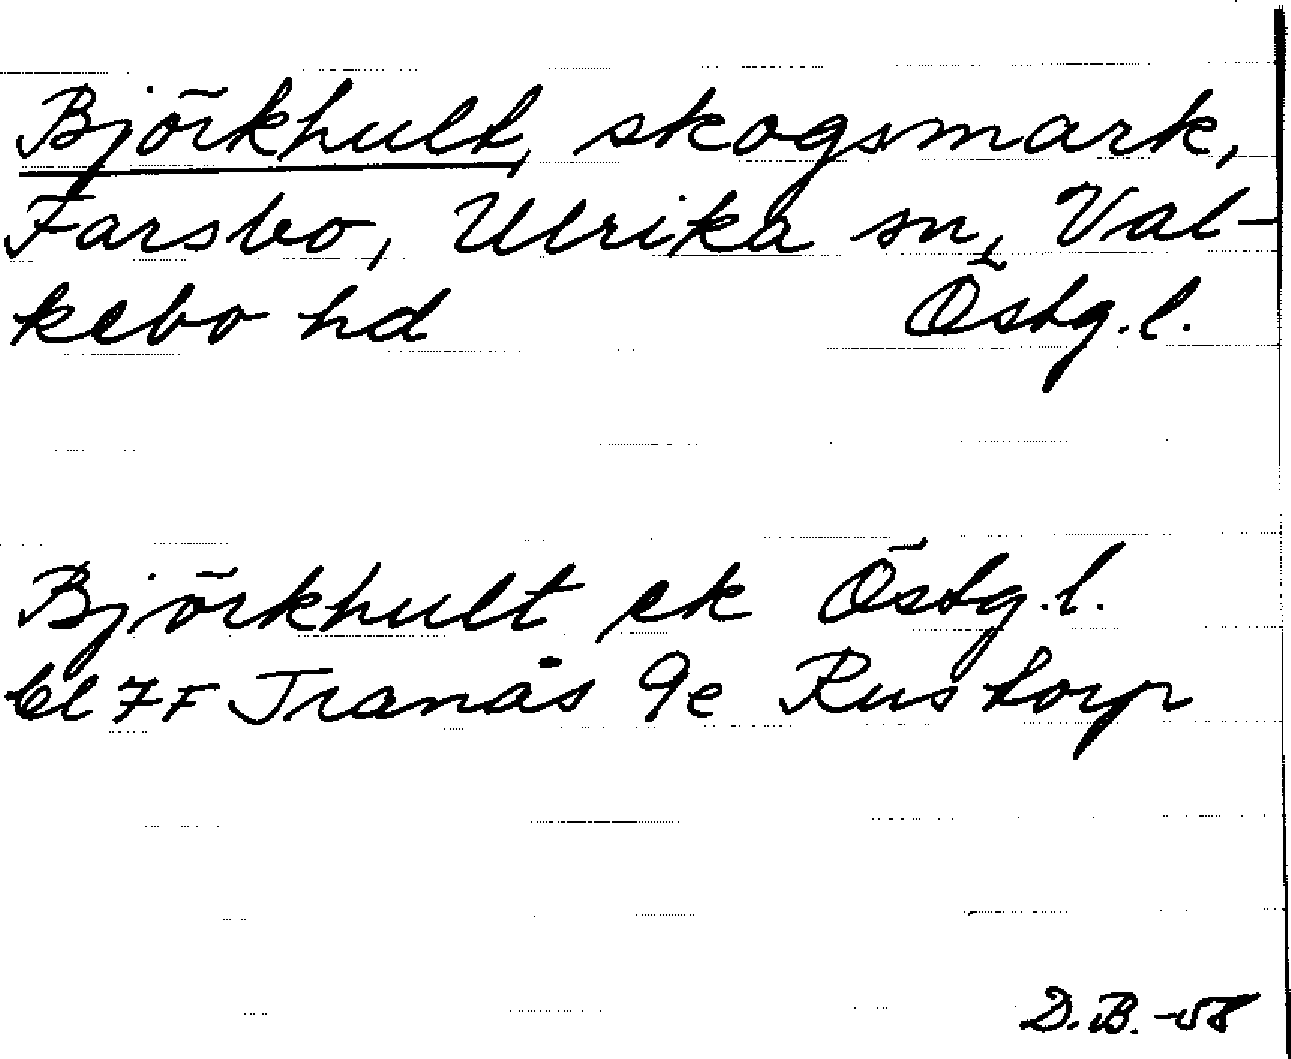 Björkhult, skogsmark,
Farsbo, Ulrika sn, Val-
kebo hd Östg. l.
Björkhult ek Östg. l.
bl 7F Tranås 9e Rustorp
D.B. -58